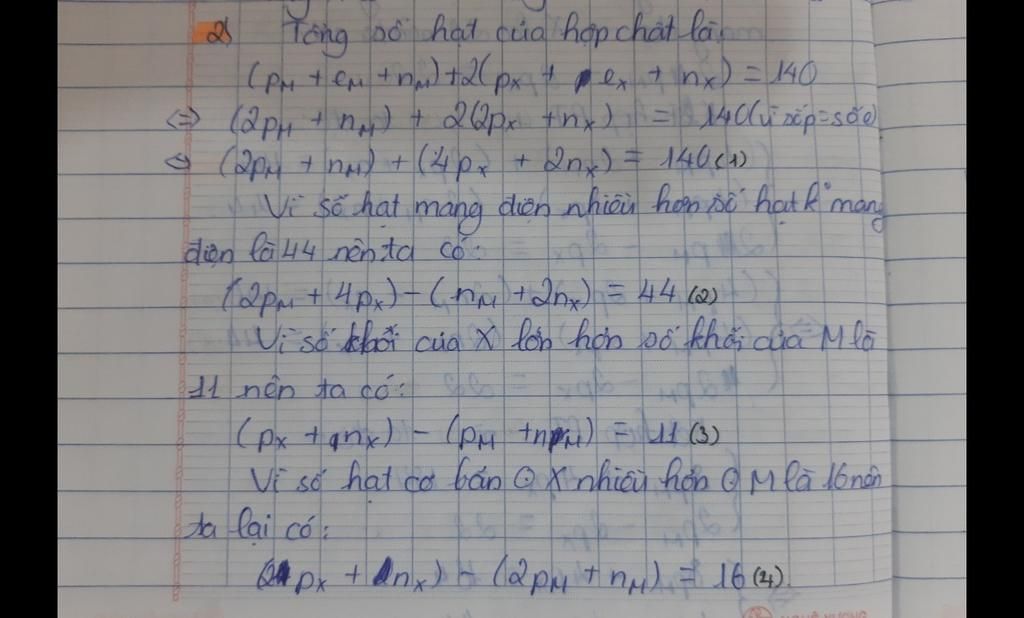 2) Tổng số hạt của hợp chất là:
(pM + eM + nM) + 2(pX + eX + nX) = 140
⇔ (2pM + nM) + 2(2pX + nX) = 140 (vì số p = số e)
⇔ (2pM + nM) + (4pX + 2nX) = 140 (1)
Vì số hạt mang điện nhiều hơn số hạt k° mang
điện là 44 nên ta có:
(2pM + 4pX) - (nM + 2nX) = 44 (2)
Vì số khối của X lớn hơn số khối của M là
11 nên ta có:
(pX + nX) - (pM + nM) = 11 (3)
Vì số hạt cơ bản ở X nhiều hơn ở M là 16 nên
ta lại có:
(2pX + nX) - (2pM + nM) = 16 (4)